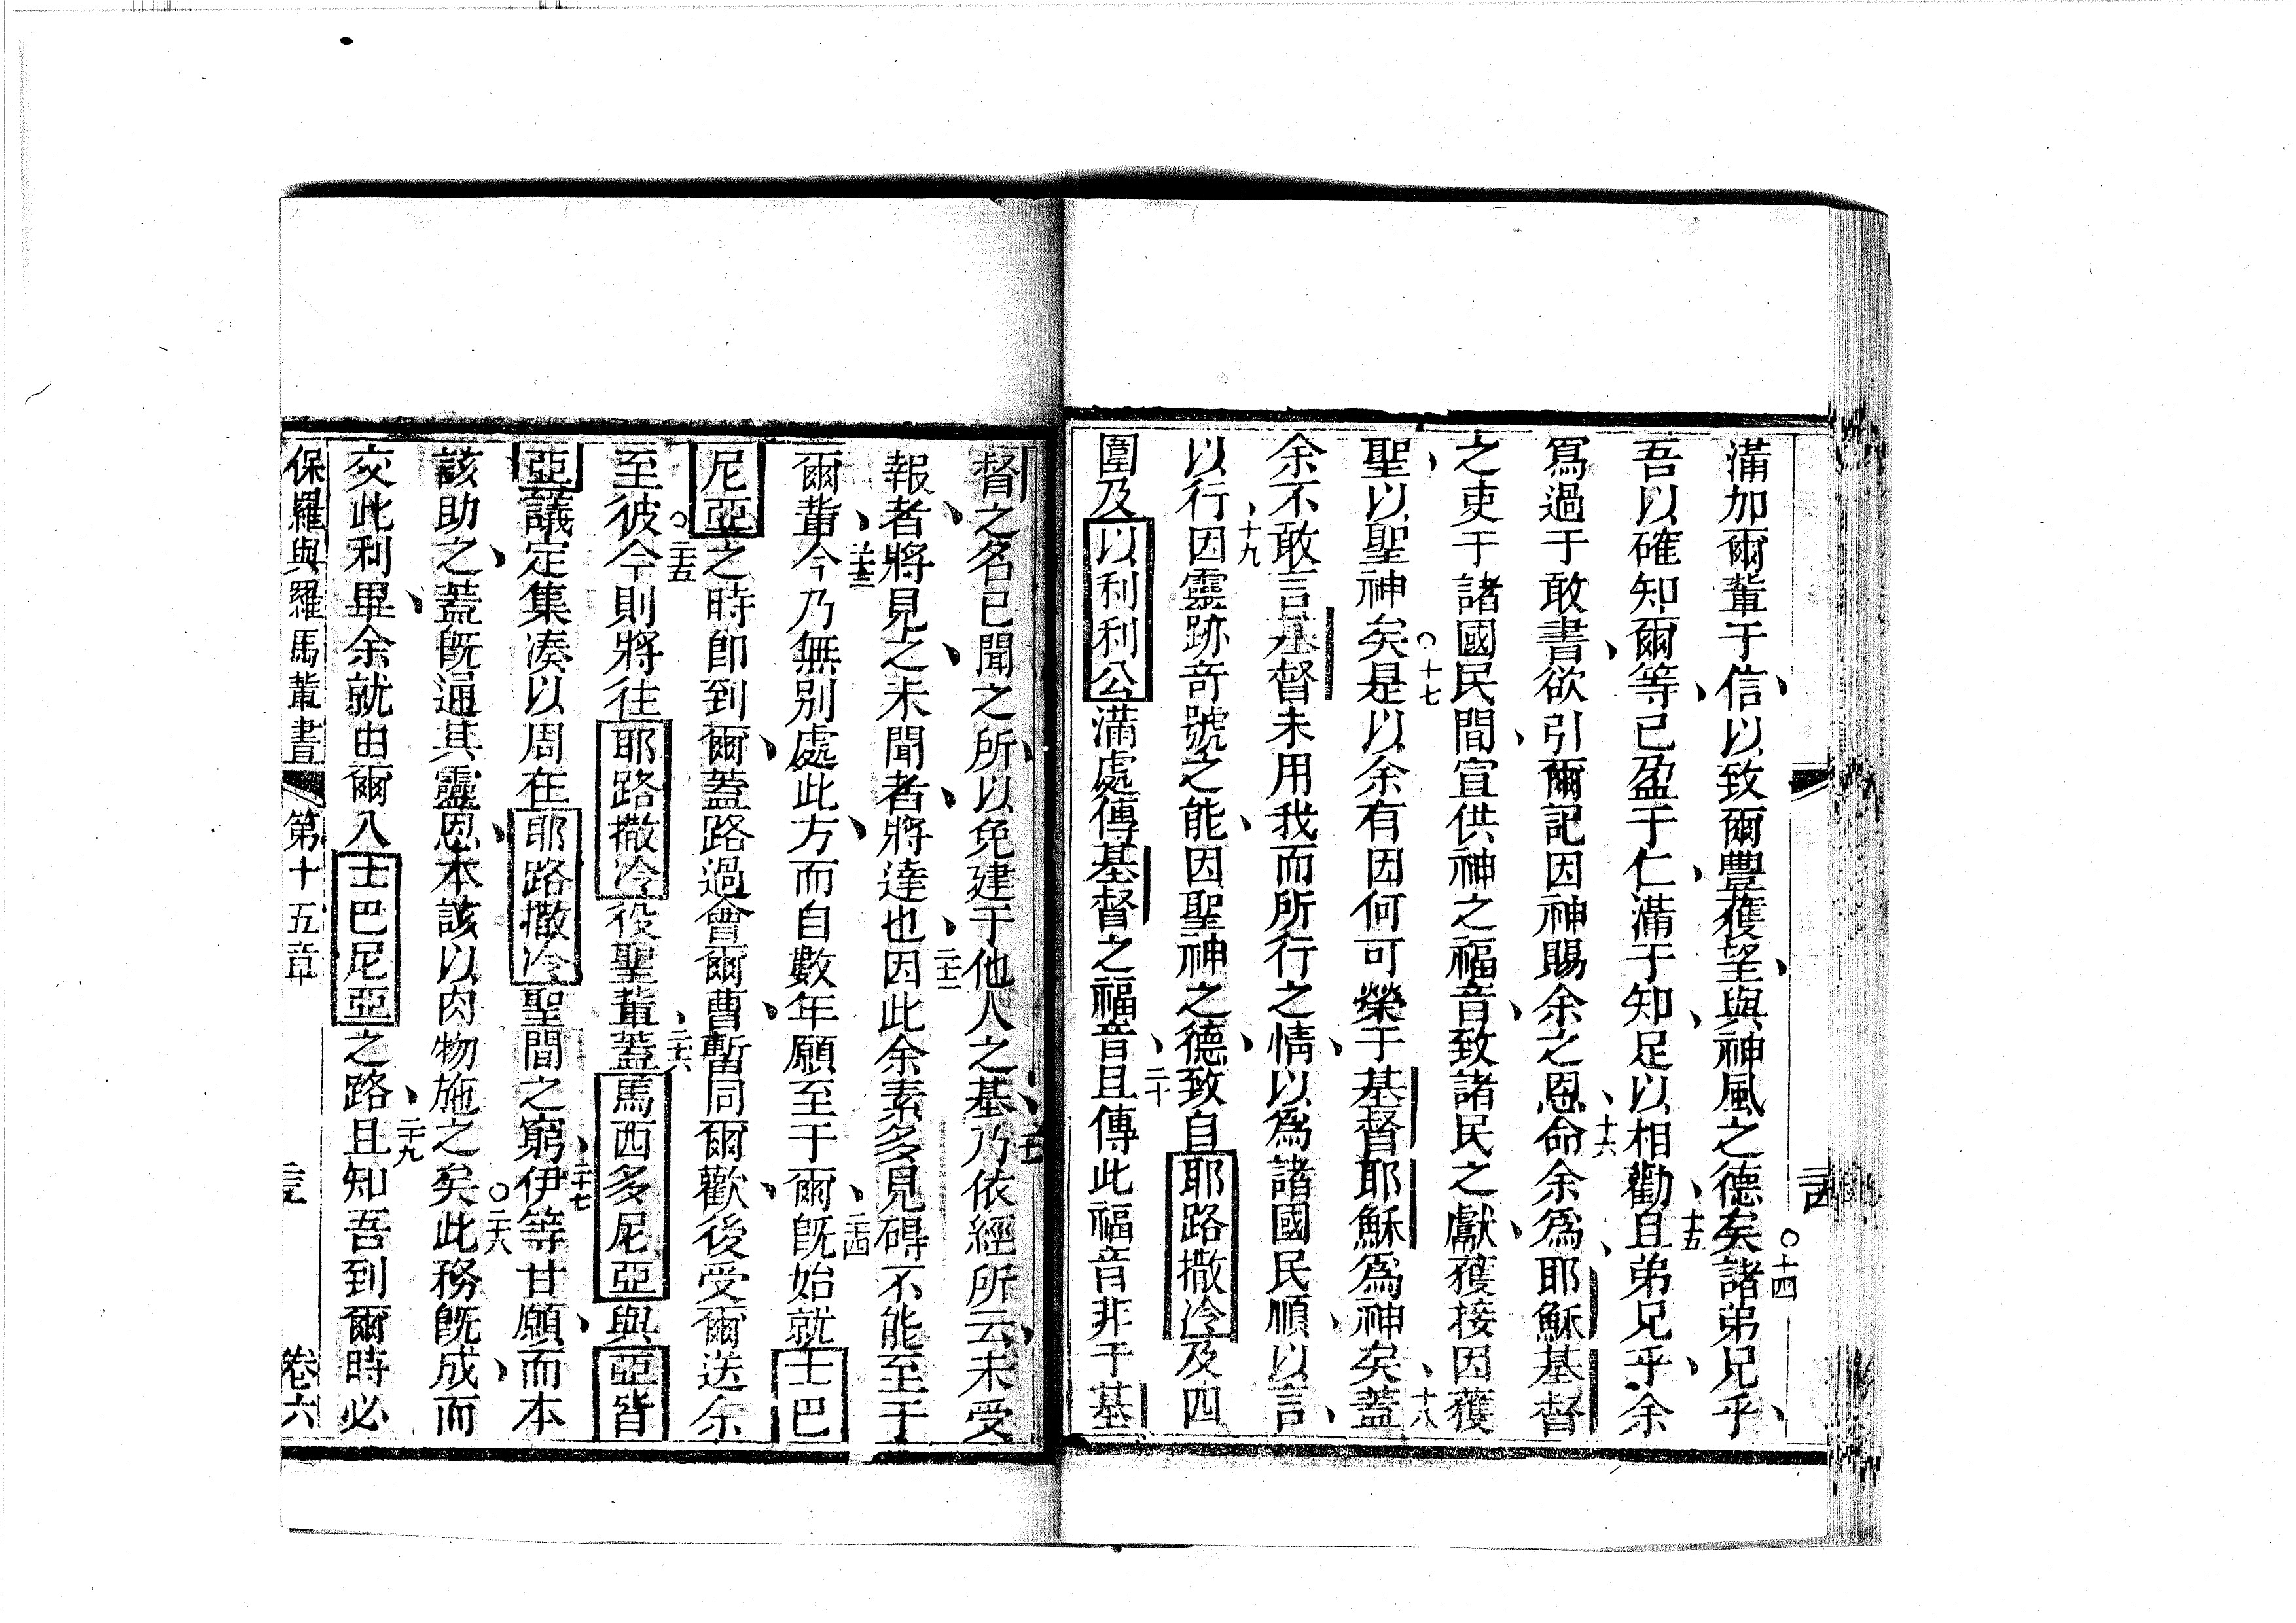 滿加爾輩于信以致爾豐獲望與神風之德矣諸弟兄乎
十四
吾以確知爾等已盈于仁滿于知足以相勸且弟兄乎余
十五
寫過于敢書欲引爾記因神賜余之恩命余為耶穌基督
十六
之吏于諸國民間宣供神之福音致諸民之獻獲接因獲
聖以聖神矣是以余有因何可榮于基督耶穌為神矣蓋
十七
十八
余不敢言基督未用我而所行之情以為諸國民順以言
以行因靈跡奇號之能因聖神之德致自耶路撒冷及四
十九
圍及以利利公滿處傳基督之福音且傳此福音非于基
二十
督之名已聞之所以免建于他人之基乃依經所云未受
報者將見之未聞者將達也因此余素多見碍不能至于
二十二
爾輩今乃無別處此方而自數年願至于爾旣始就士巴
二十三
二十四
尼亞之時卽到爾蓋路過會爾曹暫同爾歡後受爾送余
至彼今則將往耶路撒冷役聖輩蓋馬西多尼亞與亞皆
二十五
二十六
亞議定集湊以周在耶路撒冷聖間之窮伊等甘願而本
二十七
該助之蓋旣通其靈恩本該以肉物施之矣此務旣成而
二十八
交此利畢余就由爾入士巴尼亞之路且知吾到爾時必
二十九
保羅與羅馬輩書 第十五章 卷六